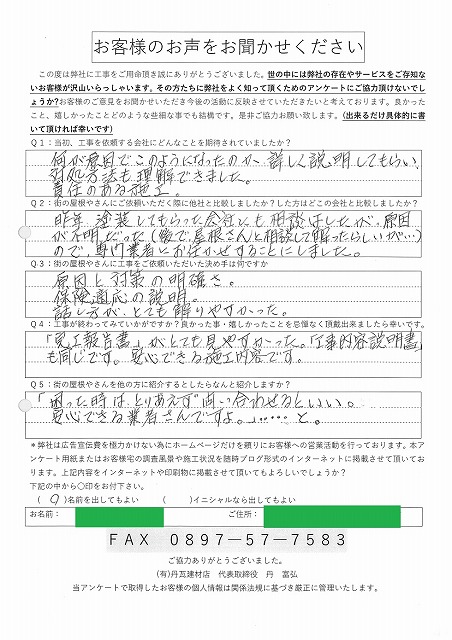 お客様のお声をお聞かせください
この度は弊社に工事をご用命頂き誠にありがとうございました。世の中には弊社の存在やサービスをご存知ないお客様が沢山いらっしゃいます。その方たちに弊社をよく知って頂くためのアンケートにご協力頂けないでしょうか?お客様のご意見をお聞かせいただき今後の活動に反映させていただきたいと考えております。良かったこと、嬉しかったことどのような些細な事でも結構です。是非ご協力お願い致します。(出来るだけ具体的に書いて頂ければ幸いです)
Q1:当初、工事を依頼する会社にどんなことを期待されていましたか?
何が原因でこのようになったのか 詳しく説明してもらい、
対処方法も理解できました。
責任のある施工。
Q2:街の屋根やさんにご依頼いただく際に他社と比較しましたか?した方はどこの会社と比較しましたか?
昨年 塗装してもらった会社にも相談はしたが、原因
が不明だった(後で、屋根さんと相談して解ったらしいが…)
ので、専門業者にお任せすることにしました。
Q3:街の屋根やさんに工事をご依頼いただいた決め手は何ですか
原因と対策の明確さ。
保険適応の説明。
話し方が、とても解りやすかった。
Q4:工事が終わってみていかがですか?良かった事・嬉しかったことを忌憚なく頂戴出来ましたら幸いです。
「完工報告書」がとても見やすかった。「工事内容説明書」
も同じです。安心できる施工内容です。
Q5:街の屋根やさんを他の方に紹介するとしたらなんと紹介しますか?
「困った時は、とりあえず問い合わせるといい。
安心できる業者さんですよ。」……と。
*弊社は広告宣伝費を極力かけない為にホームページだけを頼りにお客様への営業活動を行っております。本アンケート用紙またはお客様宅の調査風景や施工状況を随時ブログ形式のインターネットに掲載させて頂いております。上記内容をインターネットや印刷物に掲載させて頂いてもよろしいでしょうか?
下記の中から〇印をお付下さい。
(○)名前を出してもよい ( )イニシャルなら出してもよい
お名前: ご住所:
FAX 0897-57-7583
ご協力ありがとうございました。
(有)丹瓦建材店 代表取締役 丹 富弘
当アンケートで取得したお客様の個人情報は関係法規に基づき厳正に管理いたします。